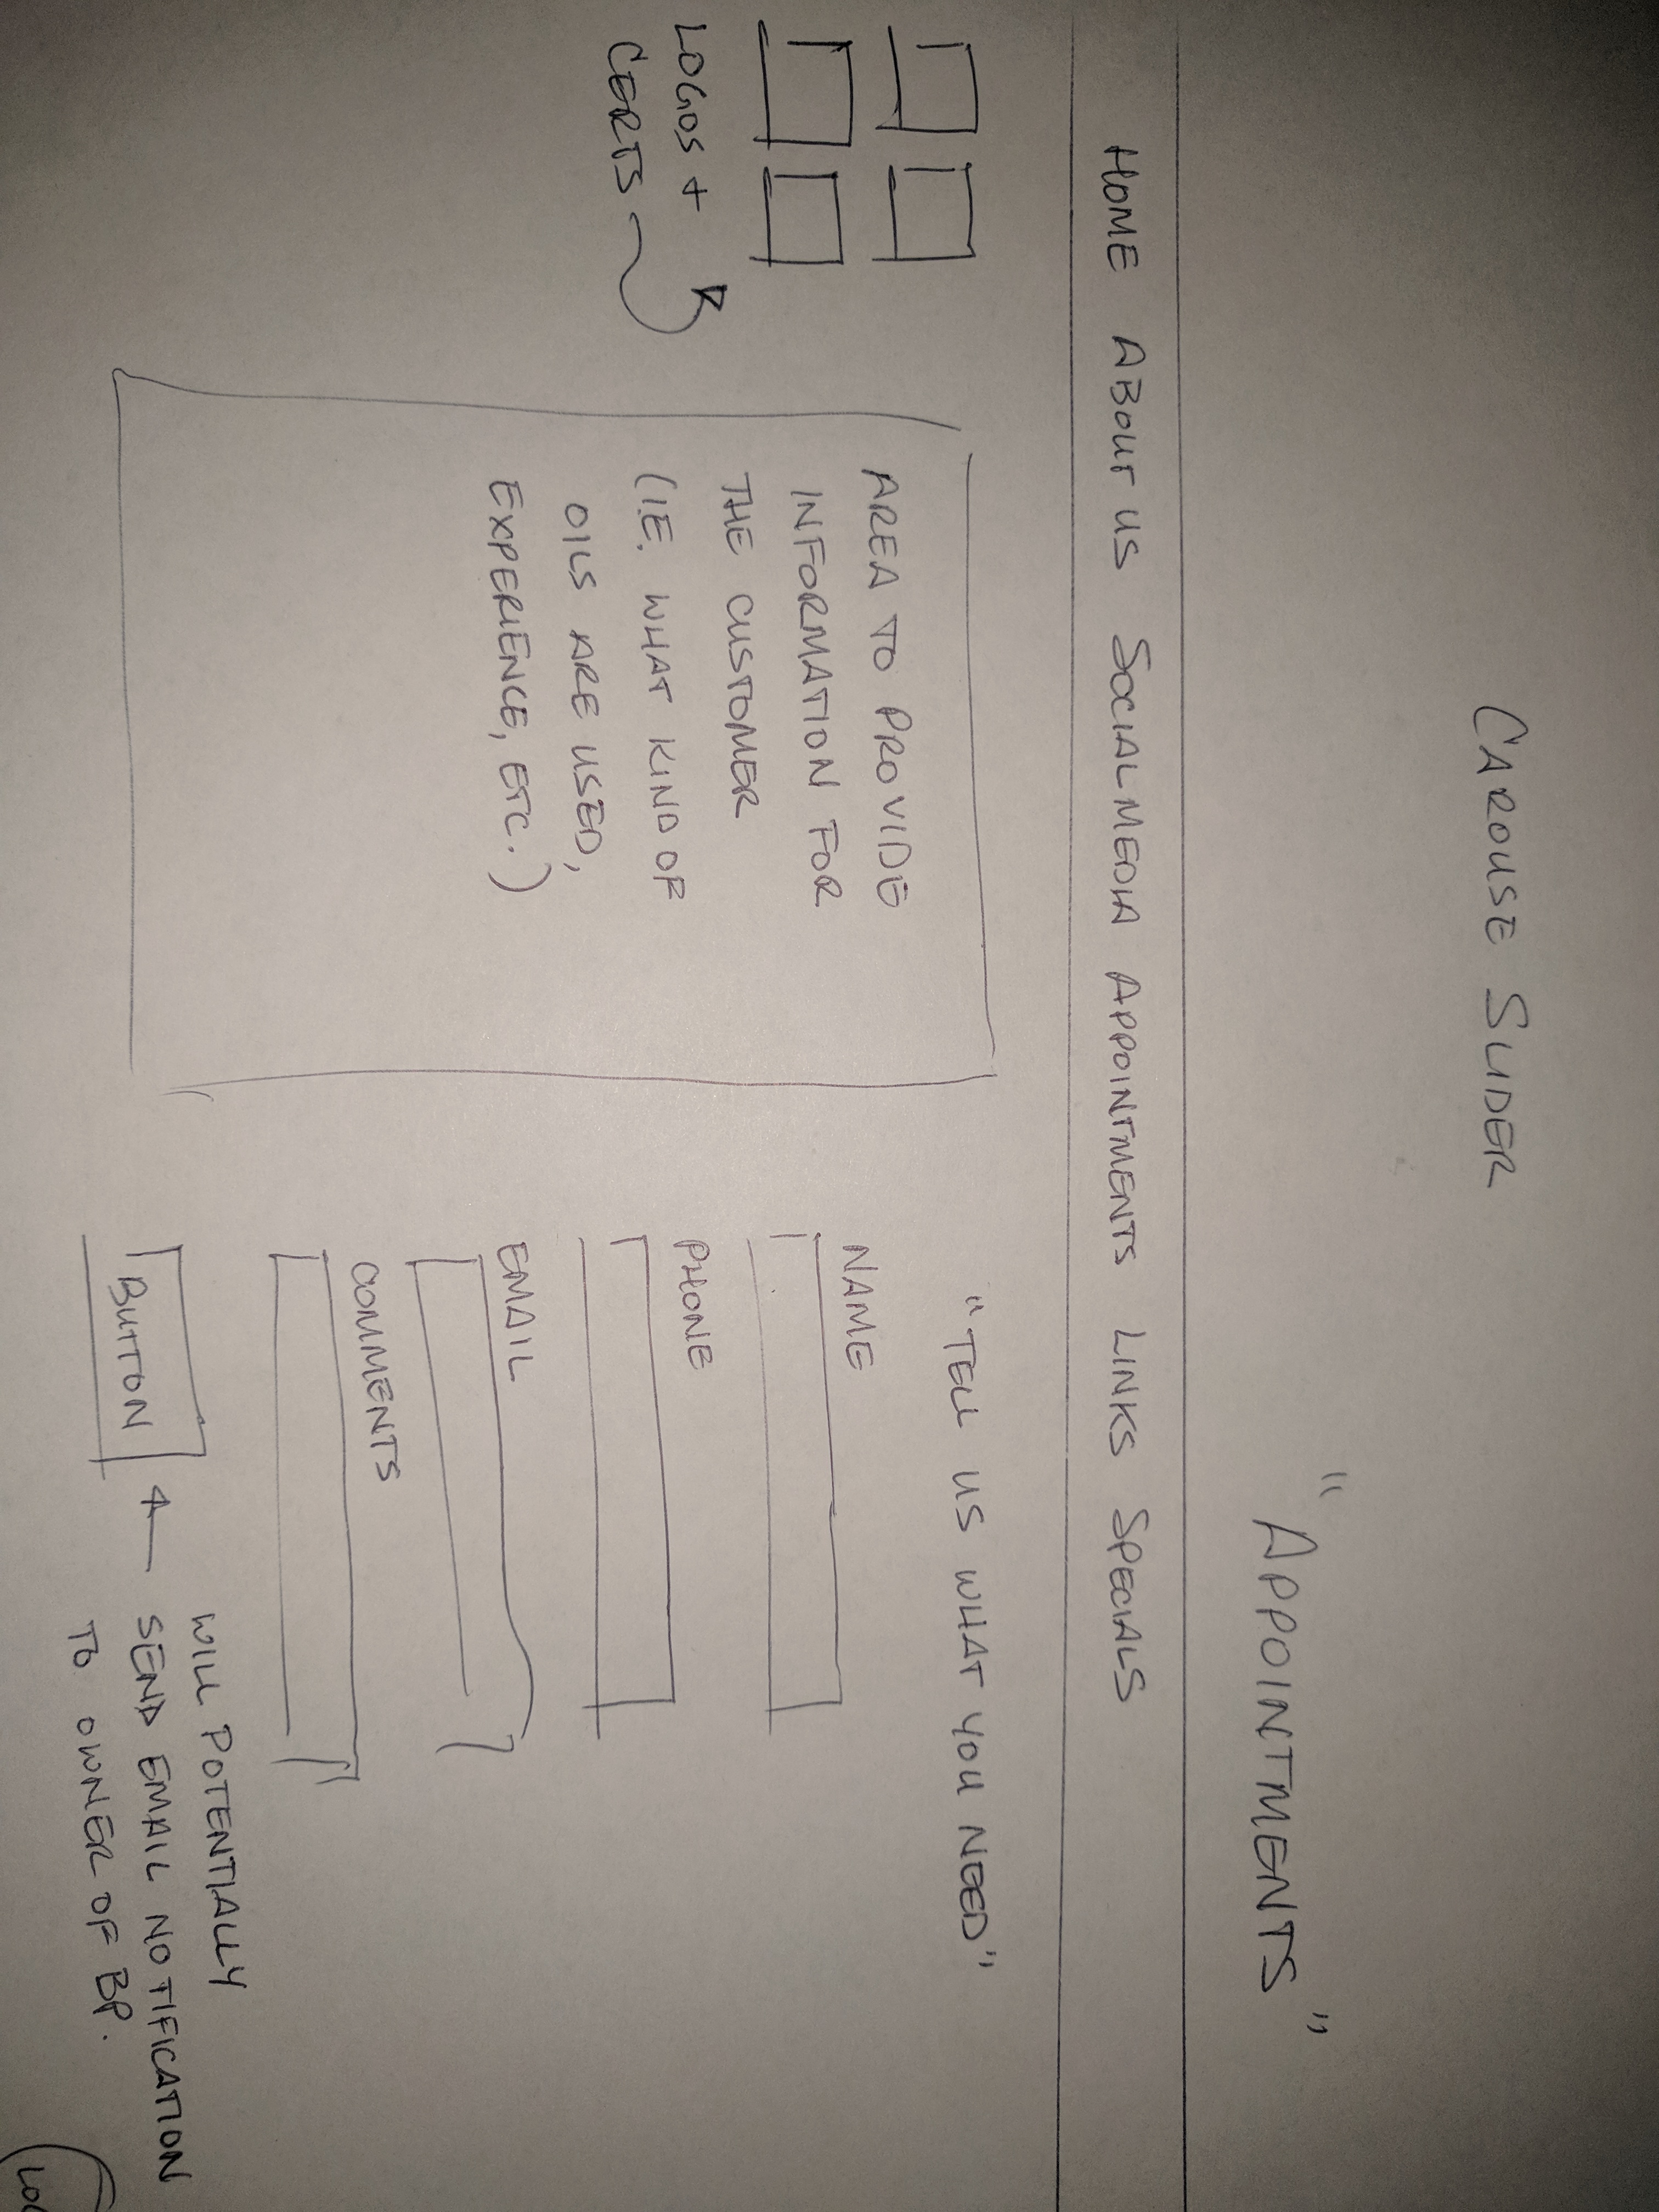 CAROUSE SLIDER
"APPOINTMENTS"
HOME ABOUT US SOCIAL MEDIA APPOINTMENTS LINKS SPECIALS
LOGOS +
CERTS
AREA TO PROVIDE
INFORMATION FOR
THE CUSTOMER
(I.E. WHAT KIND OF
OILS ARE USED,
EXPERIENCE, ETC.)
"TELL US WHAT YOU NEED"
NAME
PHONE
EMAIL
COMMENTS
BUTTON
WILL POTENTIALLY
SEND EMAIL NOTIFICATION
TO OWNER OF BP.